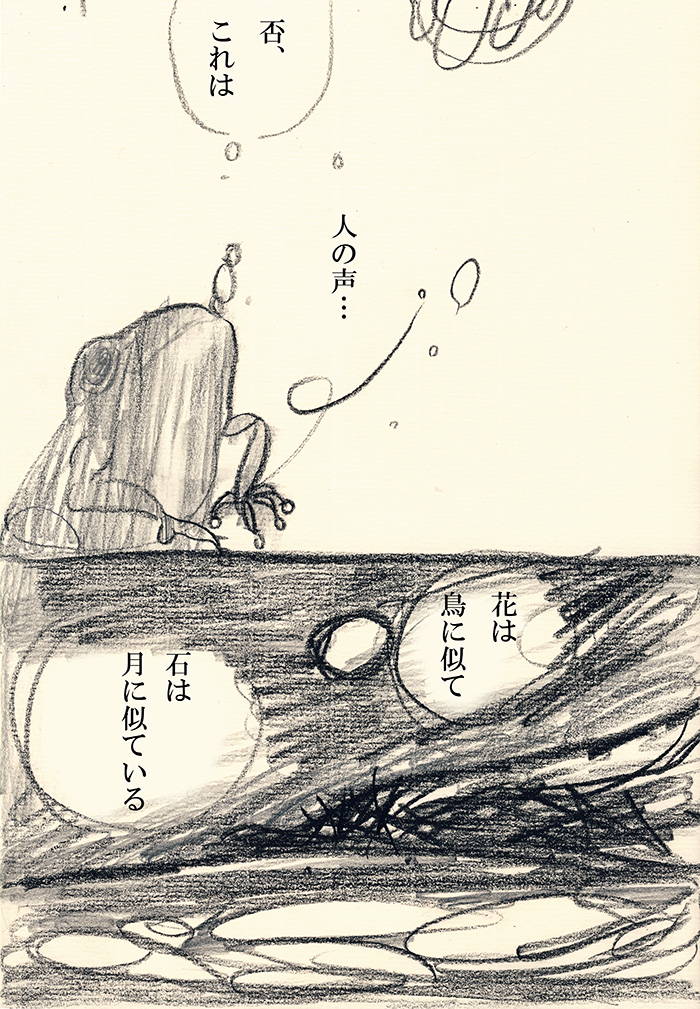 否、
これは
人の声…
花は
鳥に似て
石は
月に似ている